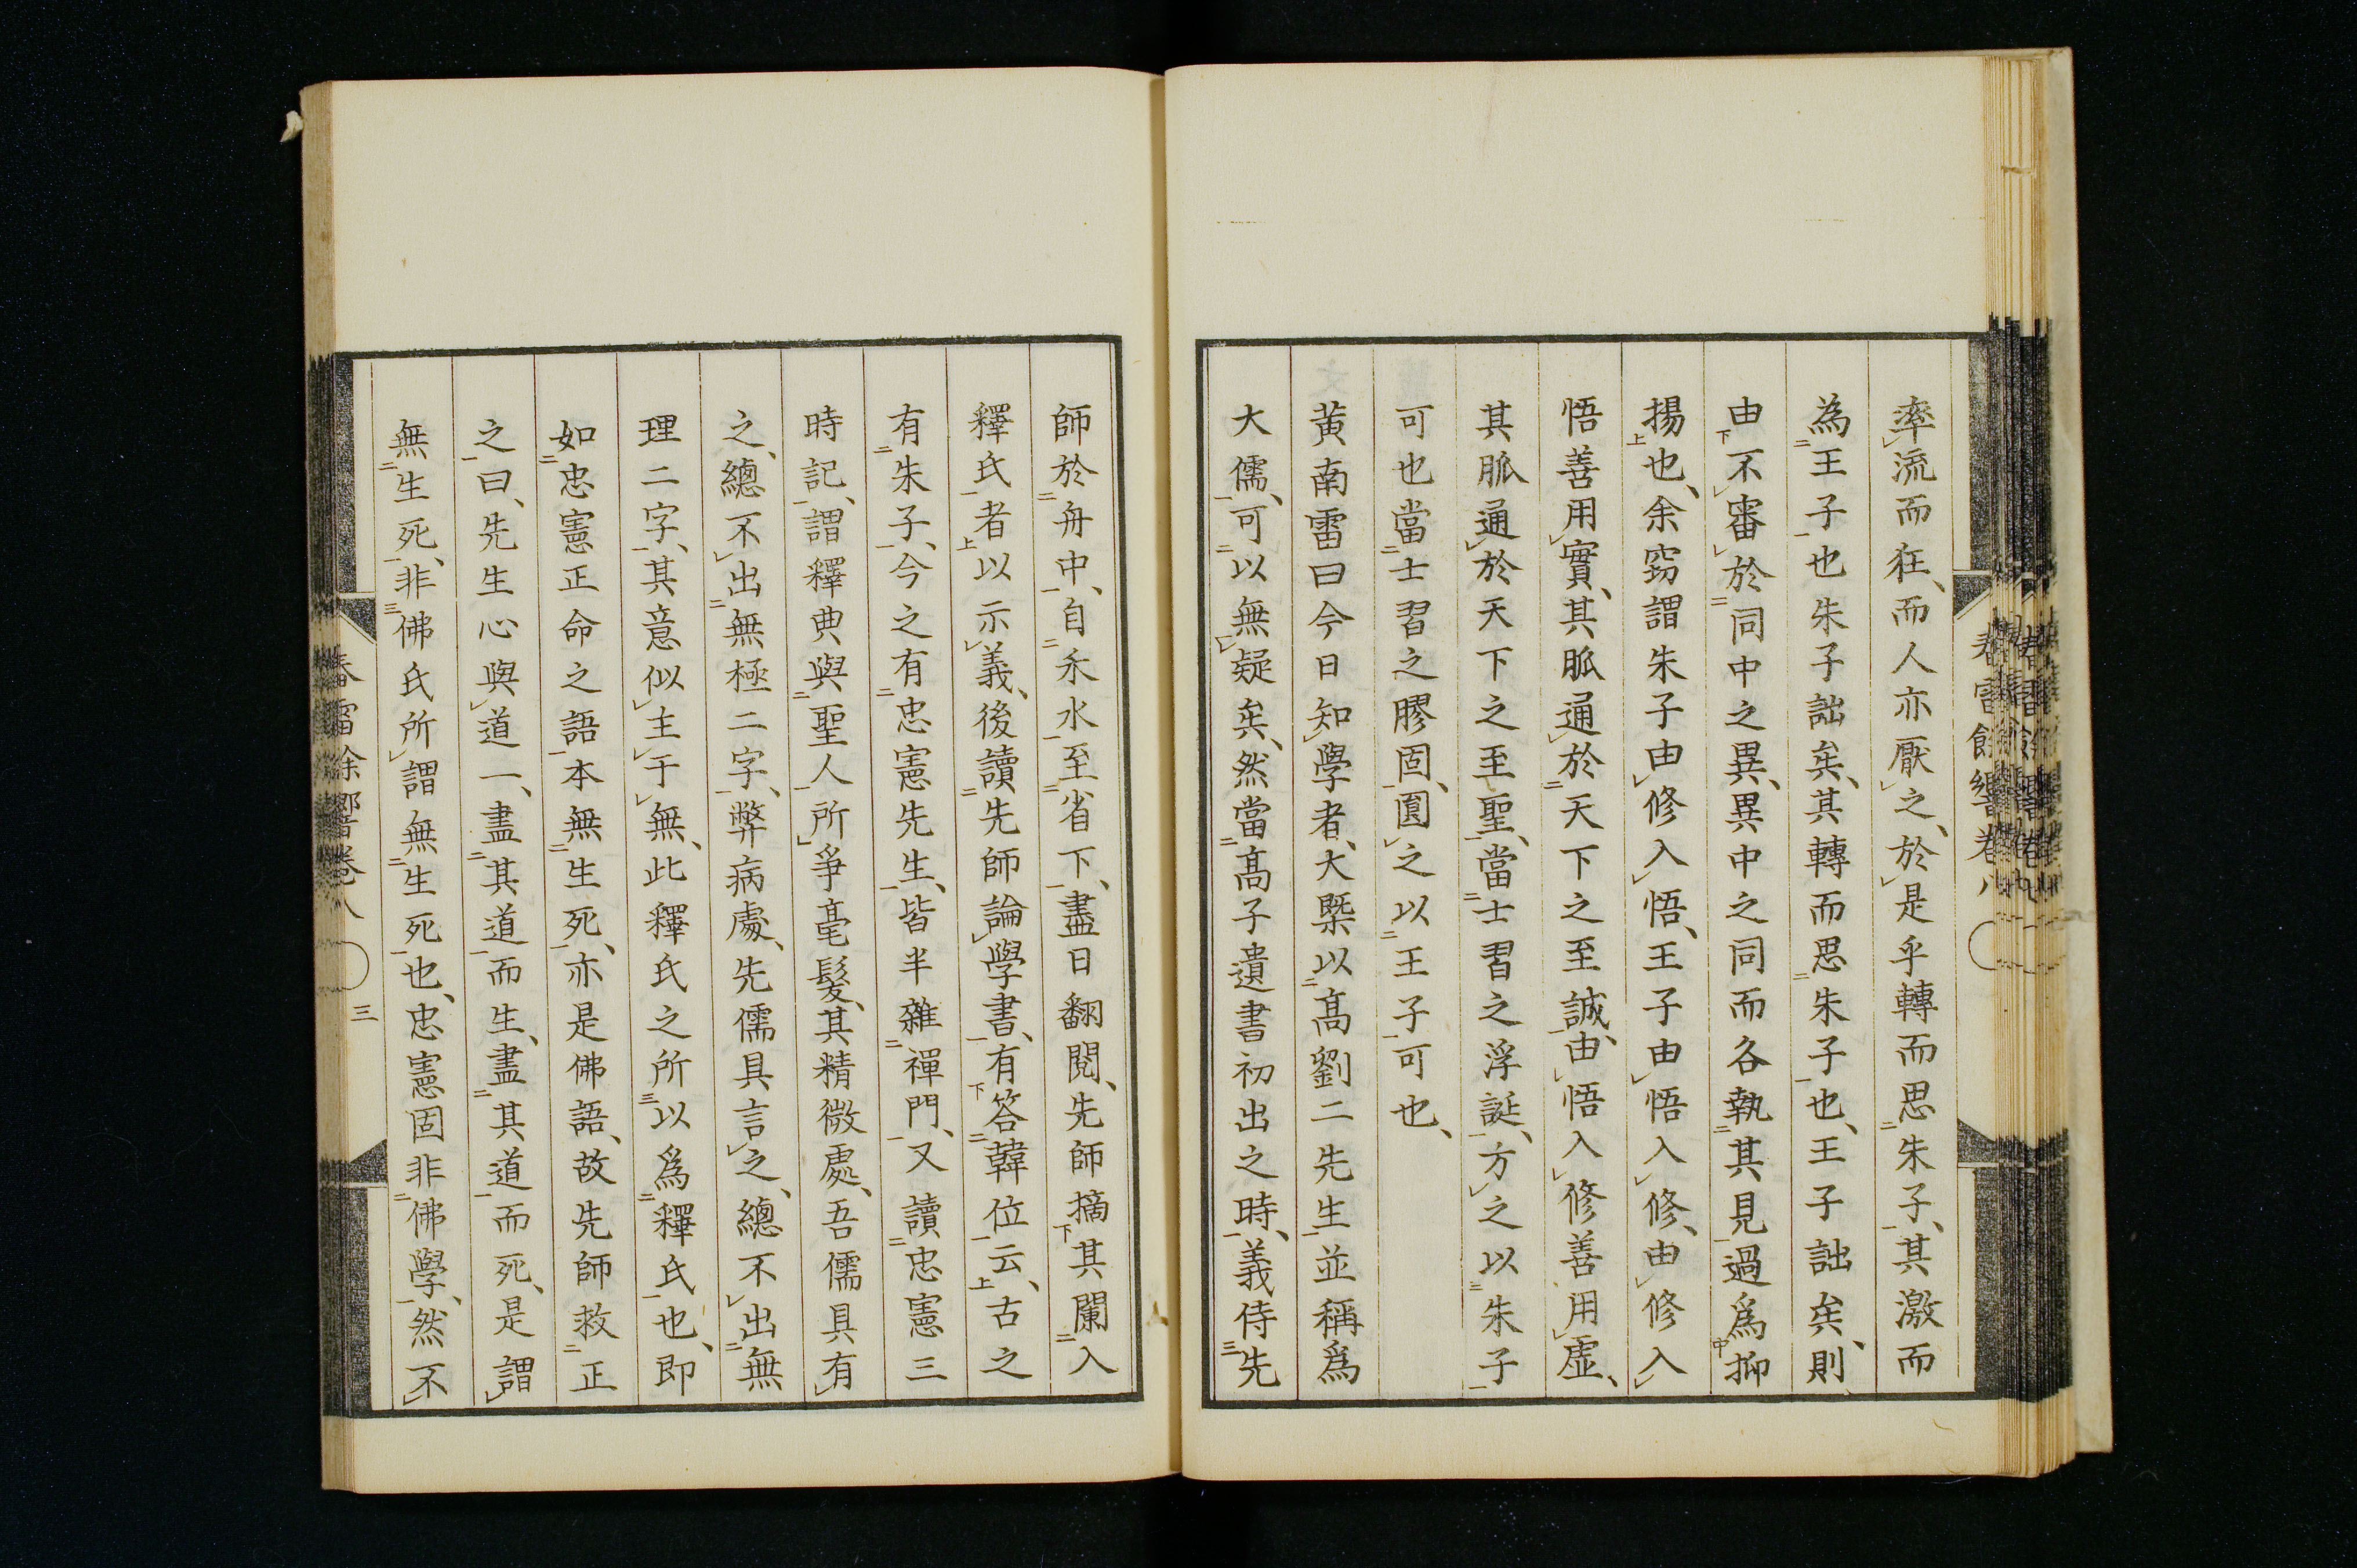 率流而狂、而人亦厭之、於是乎轉而思朱子、其激而
為王子也朱子詘矣、其轉而思朱子也、王子詘矣、則
由不審於同中之異、異中之同而各執其見過爲抑
揚也、余窈謂朱子由修入悟、王子由悟入修、由修入
悟善用實、其脈通於天下之至誠、由悟入修善用虛、
其脈通於天下之至聖、當士習之浮誕、方之以朱子
可也當士習之膠固、圓之以王子可也、
黃南雷曰今日知學者、大槩以高劉二先生並稱爲
大儒、可以無疑矣、然當高子遺書初出之時、義侍先
師於舟中、自禾水至省下、盡日翻閱、先師摘其闌入
釋氏者以示義、後讀先師論學書、有答韓位云、古之
有朱子、今之有忠憲先生、皆半雜禪門、又讀忠憲三
時記、謂釋典與聖人所爭毫髮、其精微處、吾儒具有
之、總不出無極二字、弊病處、先儒具言之、總不出無
理二字、其意似主于無、此釋氏之所以爲釋氏也、即
如忠憲正命之語本無生死、亦是佛語、故先師救正
之曰、先生心與道一、盡其道而生、盡其道而死、是謂
無生死、非佛氏所謂無生死也、忠憲固非佛學、然不
春雷餘響卷八
三
春雷餘響卷八